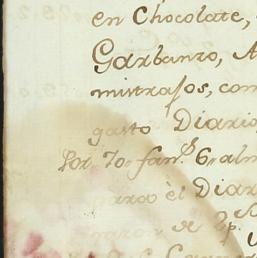 en Chocolate,
Garbanzo, A
mistrasos, com
gasto Diario
Por 70 fan.s 6 alm
para èl Diar
de 2p.s